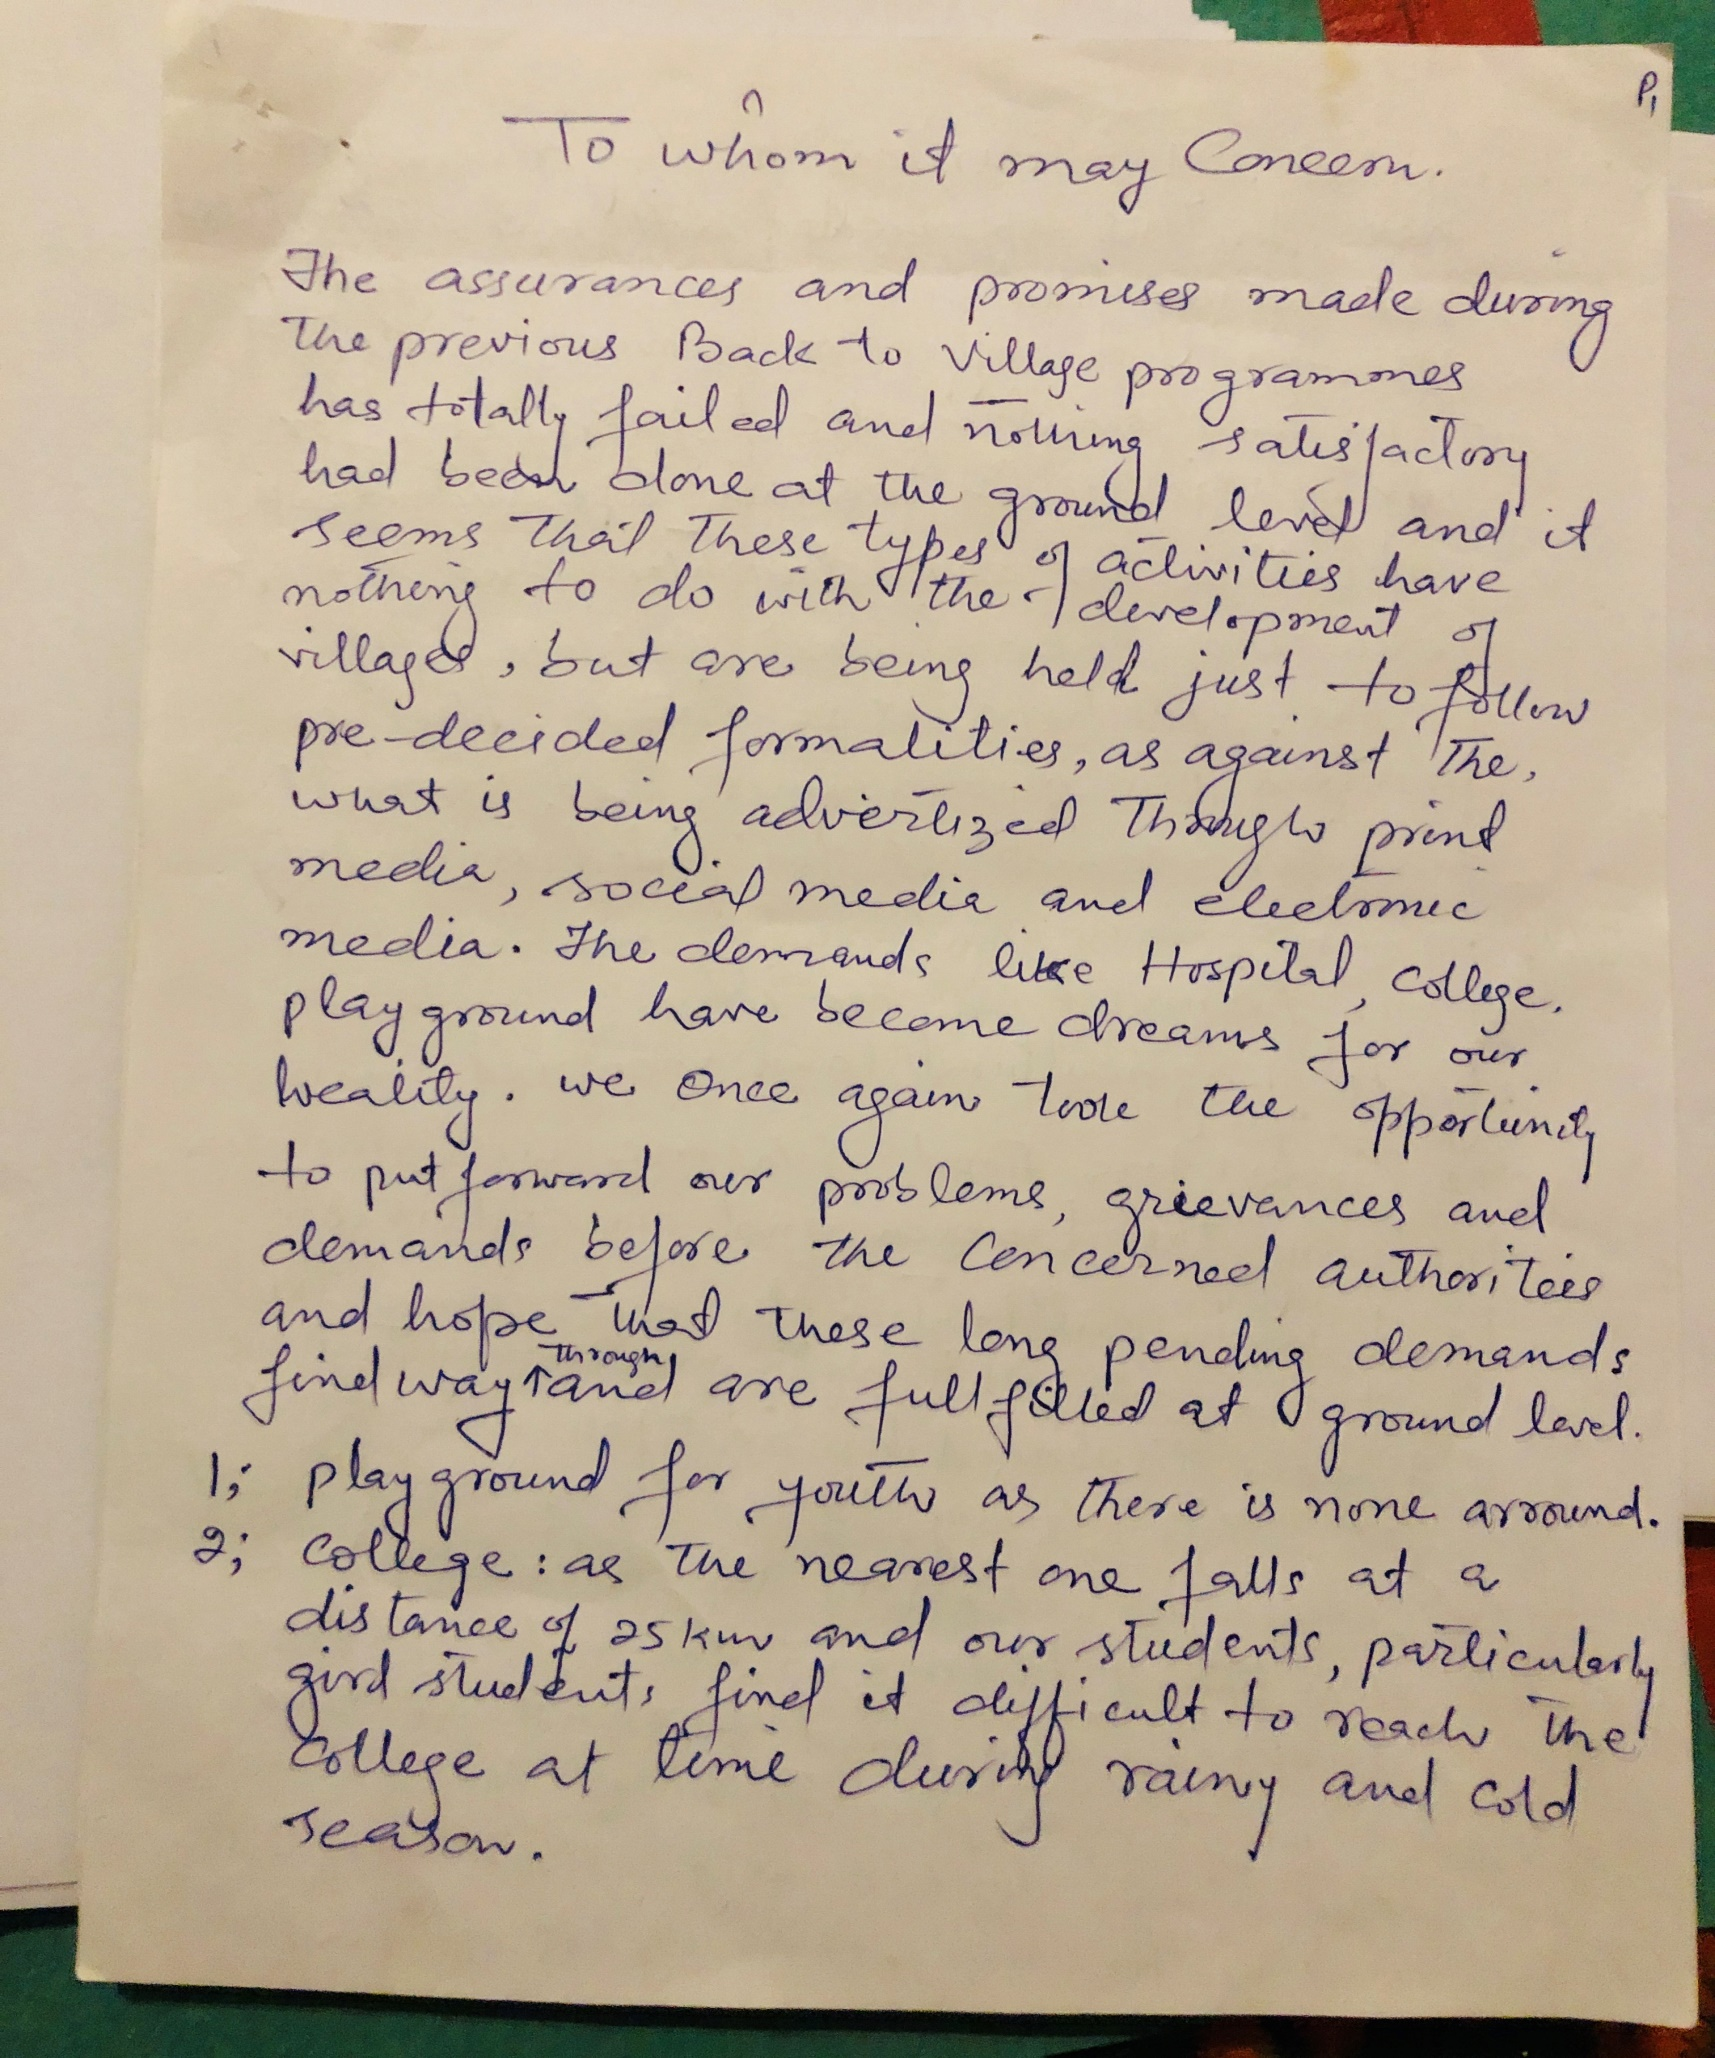 P1
To whom it may Concern.
The assurances and promises made during
the previous Back to Village programmes
has totally failed and nothing satisfactory
had been done at the ground level and it
seems that these types of activities have
nothing to do with the development of
villages, but are being held just to follow
pre-decided formalities, as against the,
what is being advertized through print
media, social media and electronic
media. The demands like Hospital, College,
playground have become dreams for our
locality. we once again took the opportunity
to put forward our problems, grievances and
demands before the Concerned authorities
and hope that these long pending demands
find way through and are fullfilled at ground level.
1; playground for youth as there is none arround.
2; College: as the nearest one falls at a
distance of 25 km and our students, particularly
girl students find it difficult to reach the
College at time during rainy and cold
season.